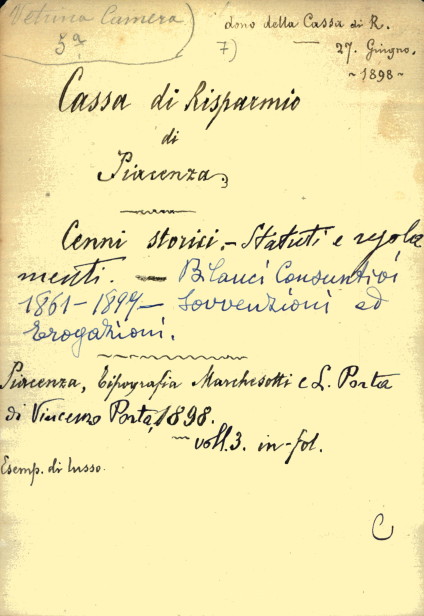 Vetrina Camera
5ª
dono della Cassa di R.
7)
27. Giugno.
~ 1898 ~
Cassa di Risparmio
di
Piacenza.
Cenni storici. - Statuti e regola
menti. - Bilanci Consuntivi
1861 - 1897 - Sovvenzioni ed
Erogazioni.
Piacenza, Tipografia Marchesotti e L. Porta
di Vincenzo Porta, 1898.
voll. 3. in-fol.
Esemp. di lusso.
C